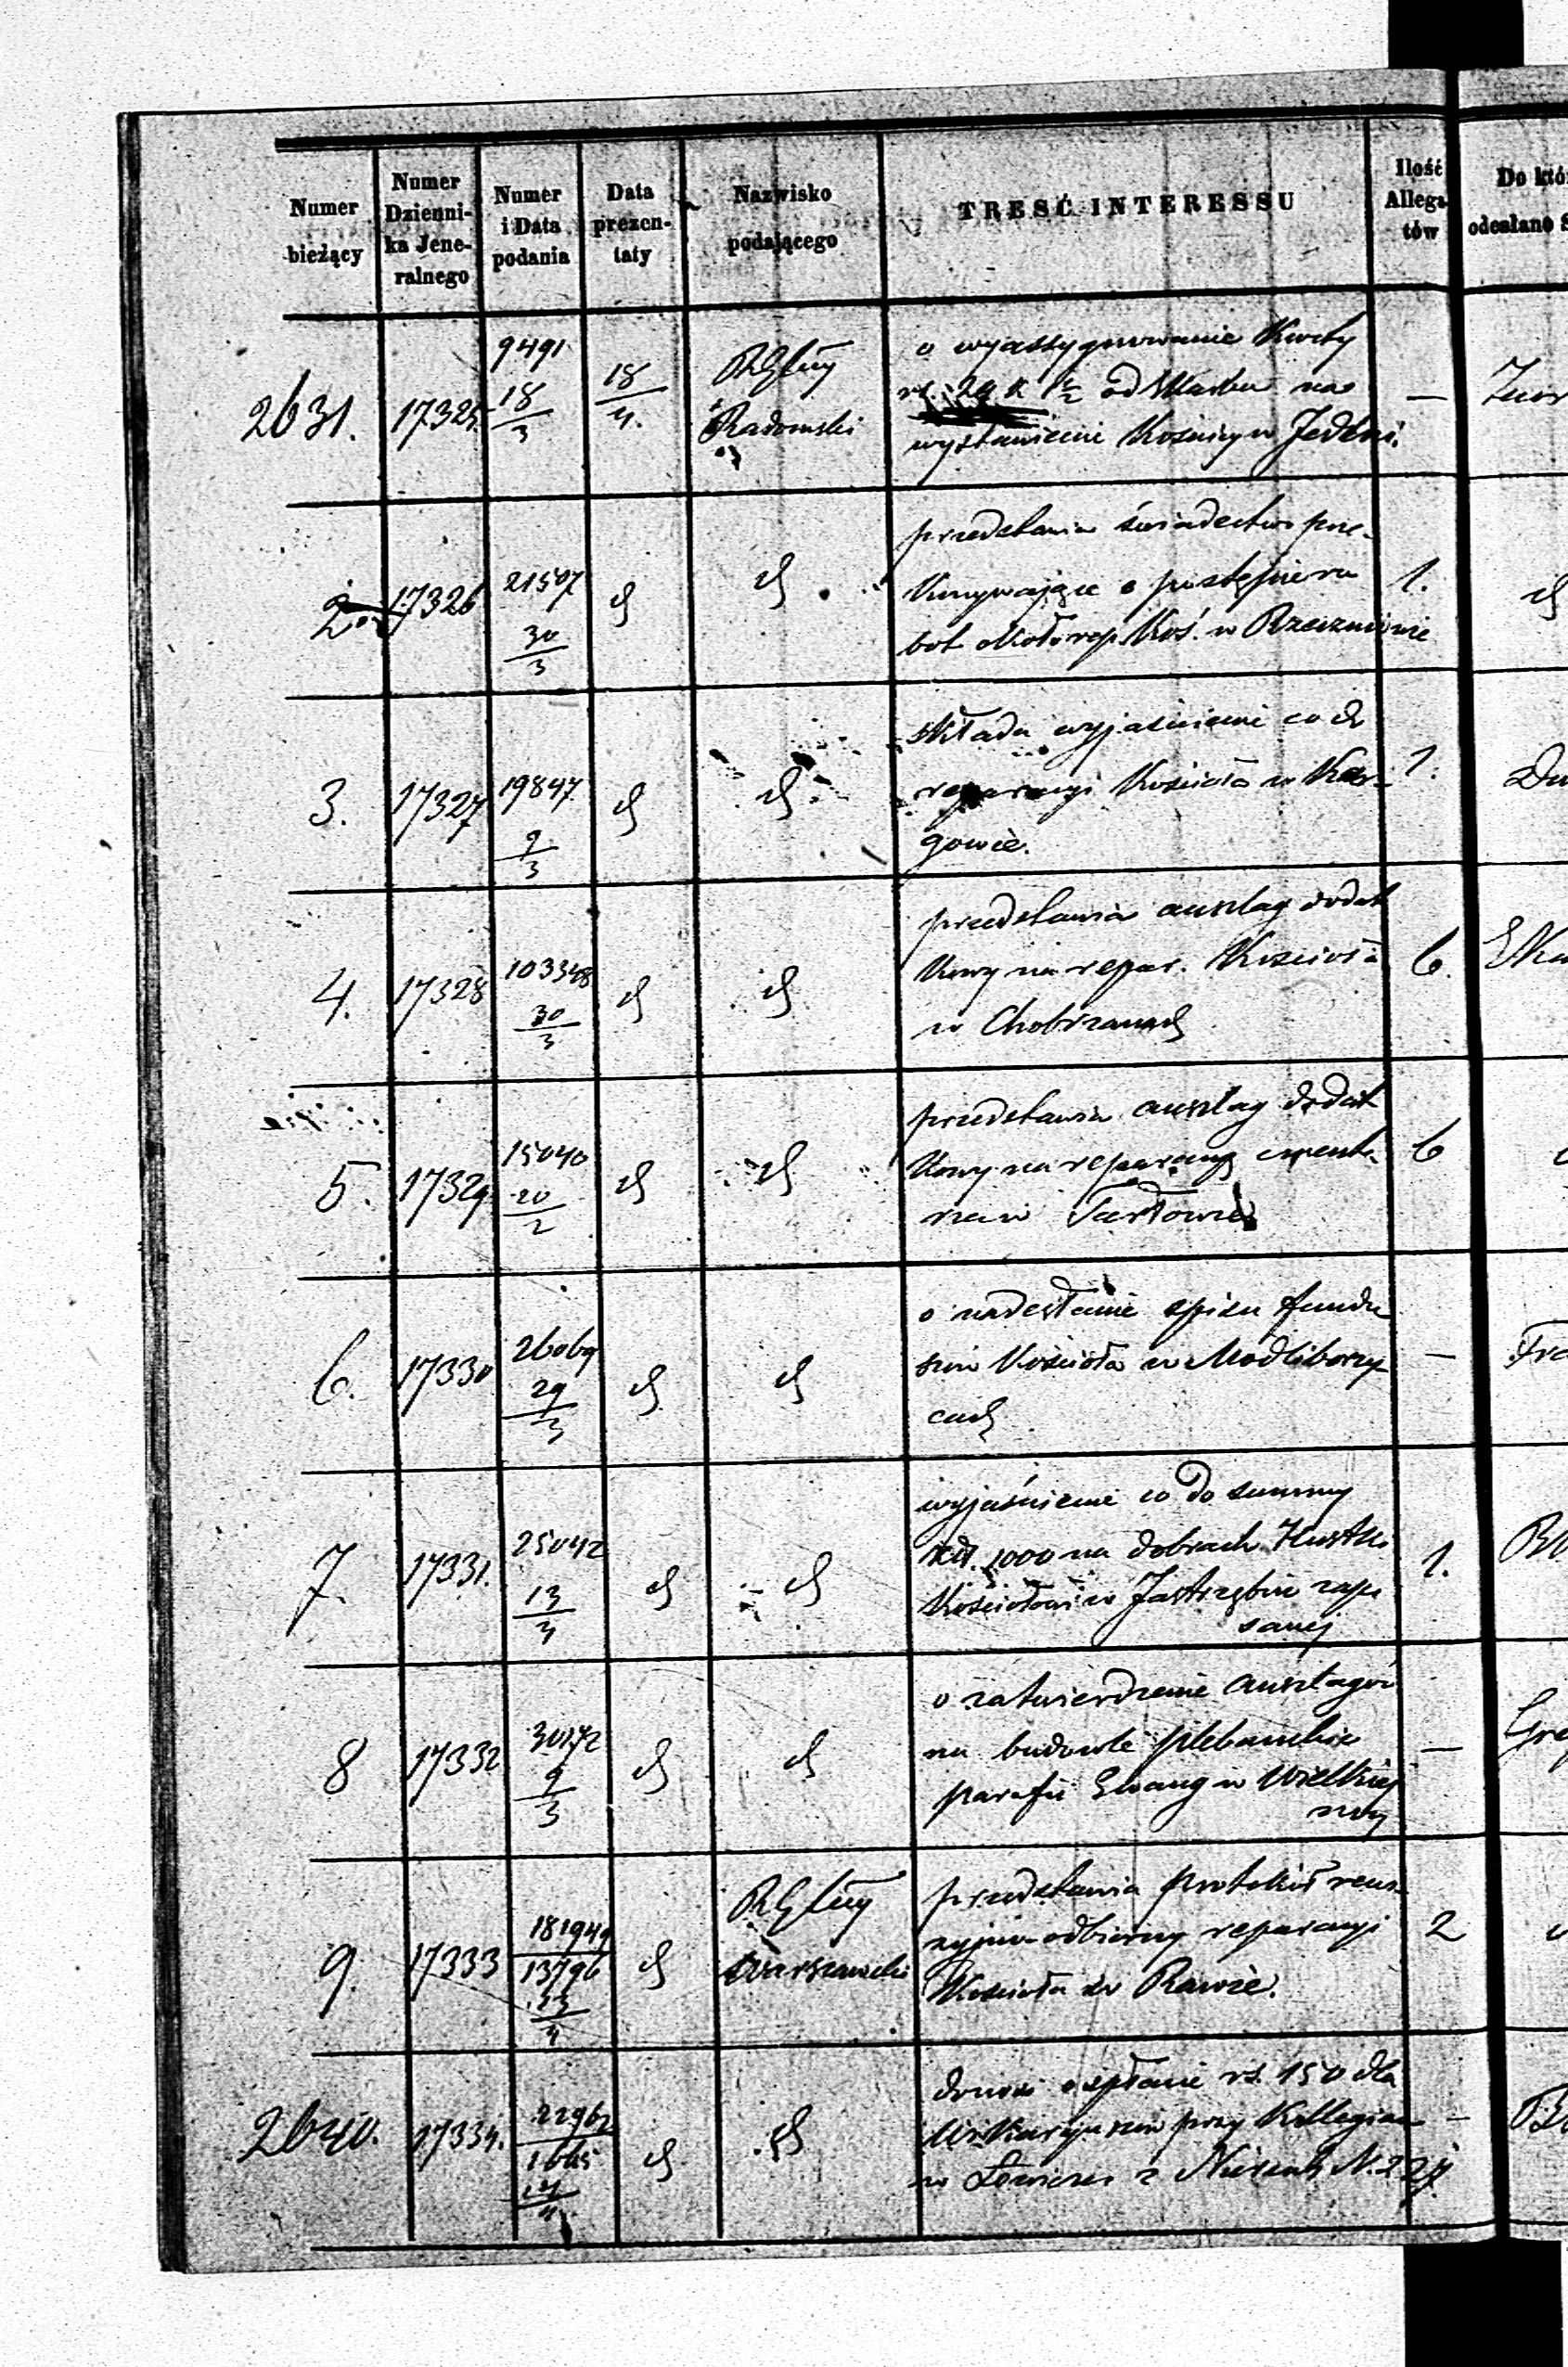 Numer bieżący
Numer Dzienni-ka Jene-ralnego
Numer i Data podania
Data prezen-taty
Nazwisko podającego
TREŚĆ INTERESSU
Ilość Allega-tów
Do któ
odesłano s
2631. 17325. 9491 18/3 18/4. Radomski
o wyassygnowanie Kwoty
rs. 29 k 1/2 od Skarbu na
wystawienie Kośnicy w Jedlni. —
2 17326 21507 30/3 d d
przedstawia świadectwo prze-
konywające o postępie ro
bot około rep. Koś. w Rzecznowie 1. d
3. 17327 19847 9/3 d d
składa wyjaśnienie co do
reparacyi Kościoła w Kar-
gowie. 1.
4. 17328 103348 30/3 d d
przedstawia anszlag dodat
kowy na repar. Kościoła
w Chobrzanach 6.
5. 17329 15040 20/2 d d
przedstawia anszlag dodat
kowy na reparacyą cmenta
rza w Tarłowie 6
6. 17330 26069 29/3 d d
o nadesłanie spisu fundu
szów Kościoła w Modliborzy
cach —
7. 17331. 25042 13/4 d d
wyjaśnienie co do summy
złt. 1000 na dobrach
Kościołowi w Jastrzębiu zapi
sanej 1.
8 17332 30172 9/3 d d
o zatwierdzenie anszlagów
na budowle plebańskie
parafii Ewang w —
9. 17333 181949 13796 23/4 d
Warszawski
przedstawia protokół rewi-
zyjno-odbiorczy reparacyi
Kościoła w Rawie. 2
2640. 17334. 22962 1665 14/4 d d
donosi o spłacie rs. 150 dla
Wikaryuszów przy Kollegiacie
w Łowiczu z —